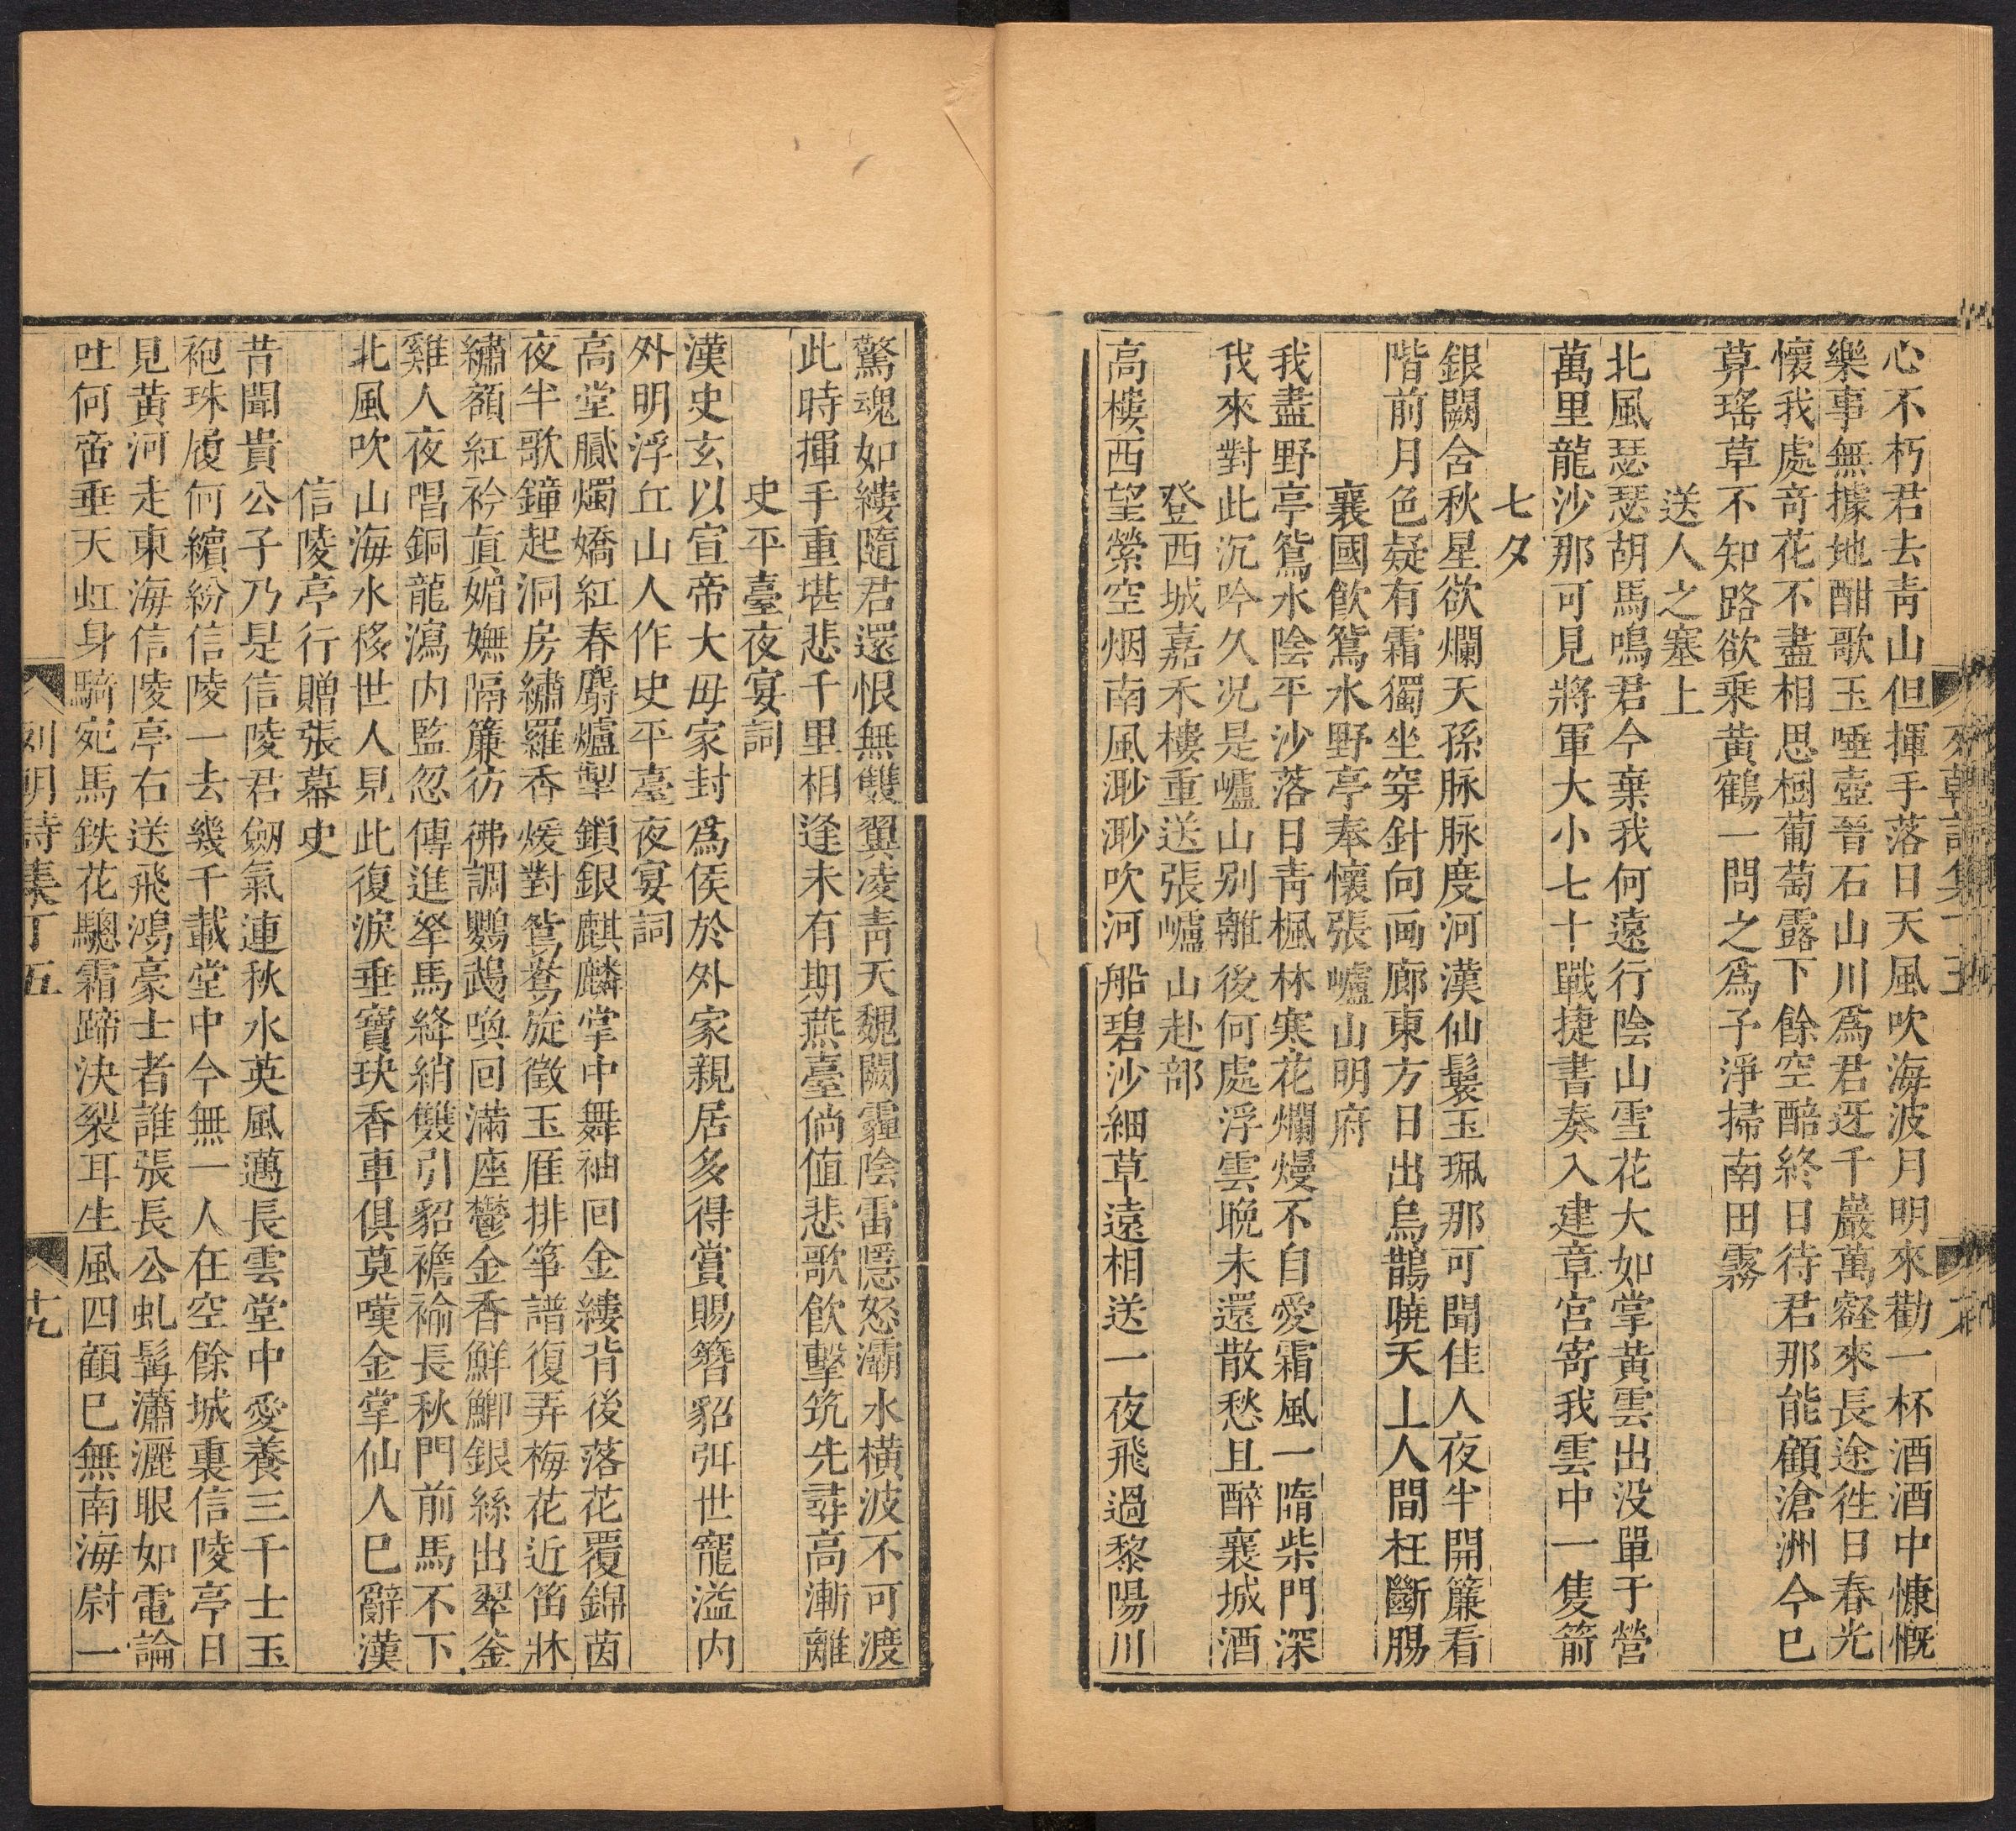 心不朽君去靑山但揮手落日天風吹海波月明來勸一杯酒酒中慷慨
樂事無據地酣歌玉唾壺晉石山川爲君迓千巖萬壑來長途徃日春光
懷我處竒花不盡相思樹葡萄露下餘空醅終日待君那能顧滄洲今巳
草瑤草不知路欲乘黃鶴一問之爲子淨掃南田霧
送人之塞上
北風瑟瑟胡馬鳴君今棄我何遠行陰山雪花大如掌黃雲出没單于營
萬里龍沙那可見將軍大小七十戰捷書奏入建章宮寄我雲中一隻箭
七夕
銀闕含秋星欲爛天孫脉脉度河漢仙鬟玉珮那可聞佳人夜半開簾看
階前月色疑有霜獨坐穿針向画廊東方日出烏鵲曉天上人間枉斷腸
襄國飮鴛水野亭奉懷張嶇山明府
我盡野亭鴛水陰平沙落日靑楓林寒花爛熳不自愛霜風一隋柴門深
我來對此沉吟久况是嶇山别離後何處浮雲晩未還散愁且醉襄城酒
登西城嘉禾樓重送張嶇山赴部
高樓西望縈空烟南風渺渺吹河船碧沙細草遠相送一夜飛過黎陽川
驚魂如縷隨君還恨無雙翼凌靑天魏闕霾陰雷隱怒灞水橫波不可渡
此時揮手重堪悲千里相逢未有期燕臺倘値悲歌飮擊筑先尋高漸離
史平臺夜宴詞
漢史玄以宣帝大母家封爲侯於外家親居多得賞賜簪貂弭世寵溢内
外明浮丘山人作史平臺夜宴詞
高堂膩燭嬌紅春麝爐掣鎖銀麒麟掌中舞袖回金縷背後落花覆錦茵
夜半歌鐘起洞房繡羅香煖對鴛鴦旋徵玉雁排箏譜復弄梅花近笛牀
繡額紅衿眞媚嫵隔簾彷彿調鸚鵡喚回滿座鬱金香鮮鯽銀絲出翠釜
雞人夜唱銅龍瀉内監忽傳進拏馬絳綃雙引貂襜褕長秋門前馬不下
北風吹山海水移世人見此復淚垂寶玦香車俱莫嘆金掌仙人巳辭漢
信陵亭行贈張幕史
昔聞貴公子乃是信陵君劒氣連秋水英風邁長雲堂中愛養三千士玉
袍珠履何繽紛信陵一去幾千載堂中今無一人在空餘城裏信陵亭日
見黃河走東海信陵亭右送飛鴻豪士者誰張長公虬髯瀟灑眼如電論
吐何啻垂天虹身騎宛馬鉄花驄霜蹄決裂耳生風四顧巳無南海尉一
列朝詩集丁五
十九